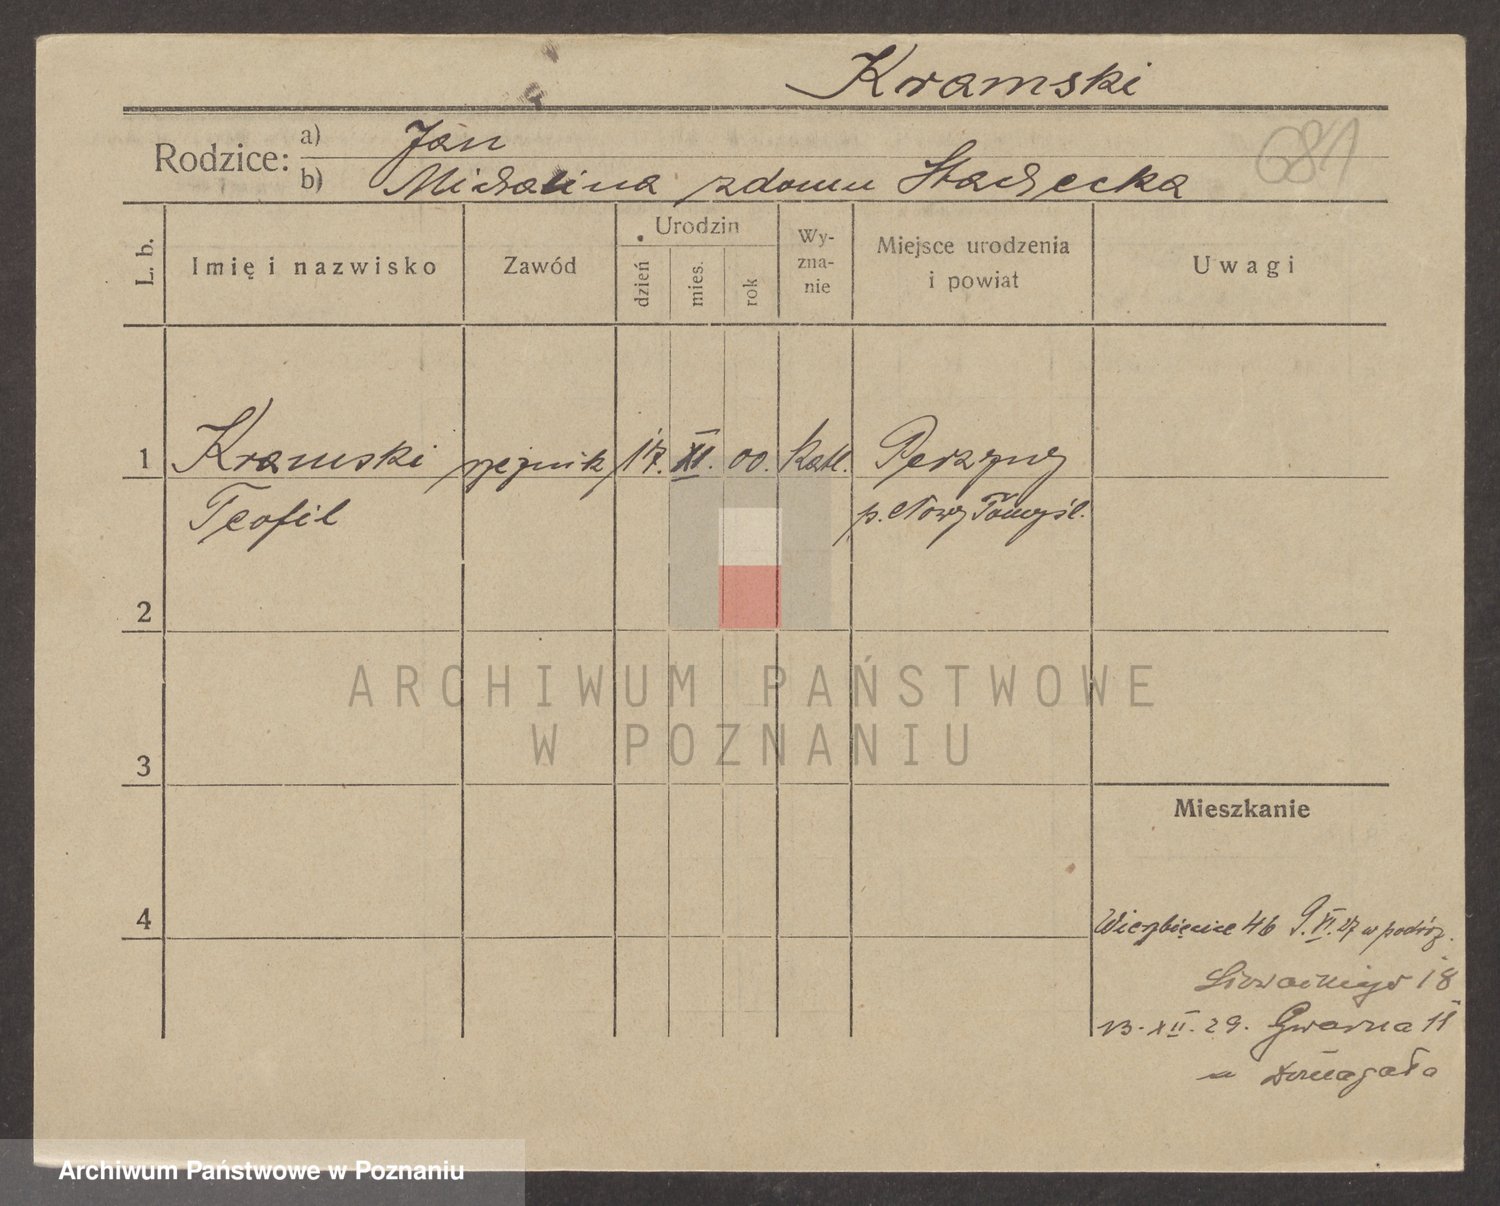 Kramski
681
Rodzice: a) Jan
b) Michalina z domu Stachecka
L. b.
Imię i nazwisko
Zawód
Urodzin
dzień
mies.
rok
Wy-
zna-
nie
Miejsce urodzenia
i powiat
Uwagi
1 Kramski rzeźnik 17. XI. 00. Katl. Perzyny
Teofil p. Nowy Tomyśl.
2
ARCHIWUM PAŃSTWOWE
W POZNANIU
3
Mieszkanie
4
Wierzbięcice 46 9. VI. 27 w podróż.
18
13. XII. 29. Gwarna 11
u Domagała
Archiwum Państwowe w Poznaniu